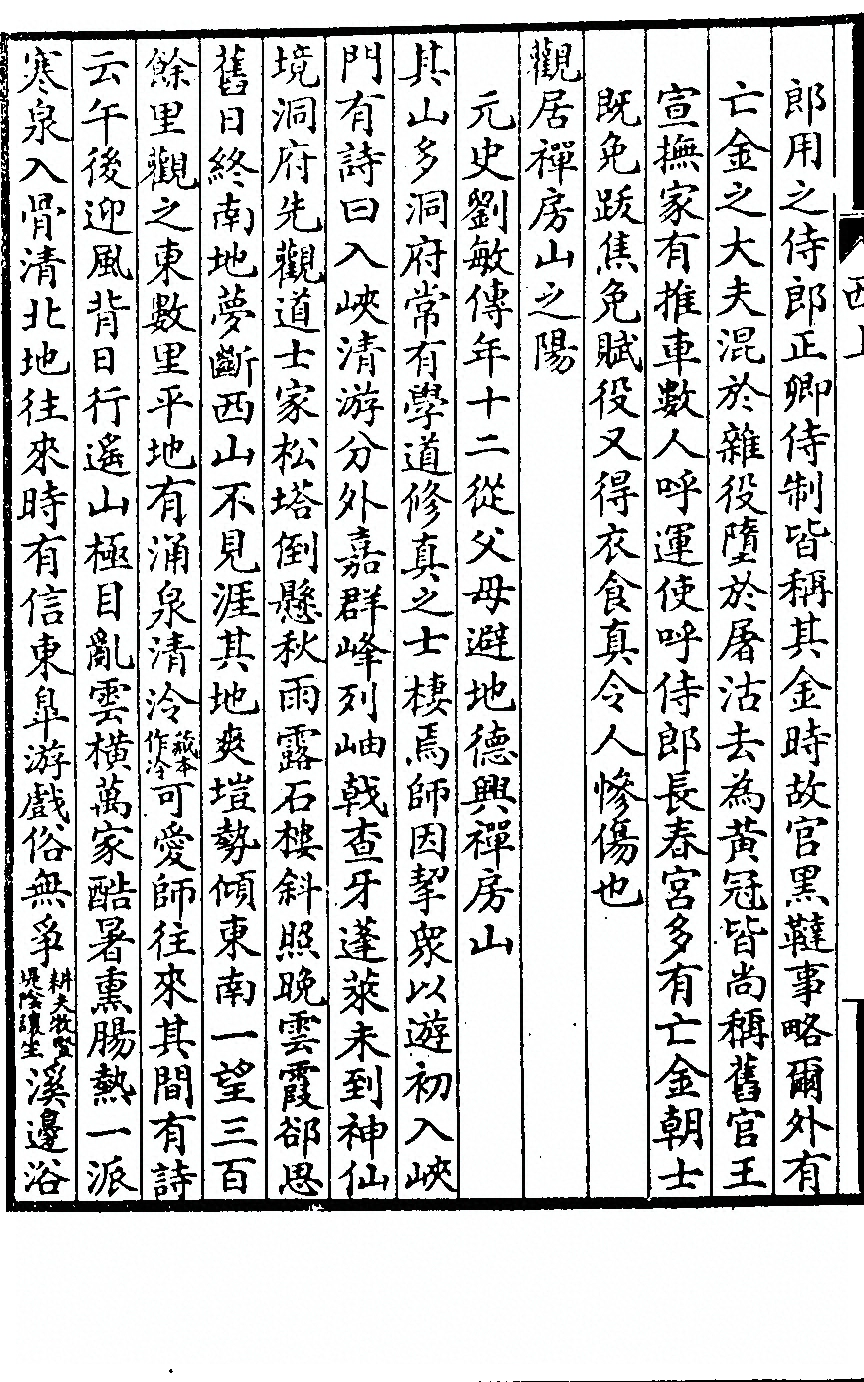 郎用之侍郎正卿侍制皆稱其金時故官黑韃事略爾外有
亡金之大夫混於雜役墮於屠沽去為黃冠皆尚稱舊官王
宣撫家有推車數人呼運使呼侍郎長春宮多有亡金朝士
既免跋焦免賦役又得衣食真令人慘傷也
觀居禪房山之陽
元史劉敏傳年十二從父母避地德興禪房山
其山多洞府常有學道修真之士棲焉師因挈衆以遊初入峽
門有詩曰入峽清游分外嘉群峰列岫戟查牙蓬萊未到神仙
境洞府先觀道士家松塔倒懸秋雨露石樓斜照晚雲霞郤思
舊日終南地夢斷西山不見涯其地爽塏勢傾東南一望三百
餘里觀之東數里平地有涌泉清泠藏本作冷可愛師往來其間有詩
云午後迎風背日行遙山極目亂雲橫萬家酷暑熏腸熱一派
寒泉入骨清北地往來時有信東皐游戲俗無爭耕夫牧豎堤陰讓坐溪邊浴